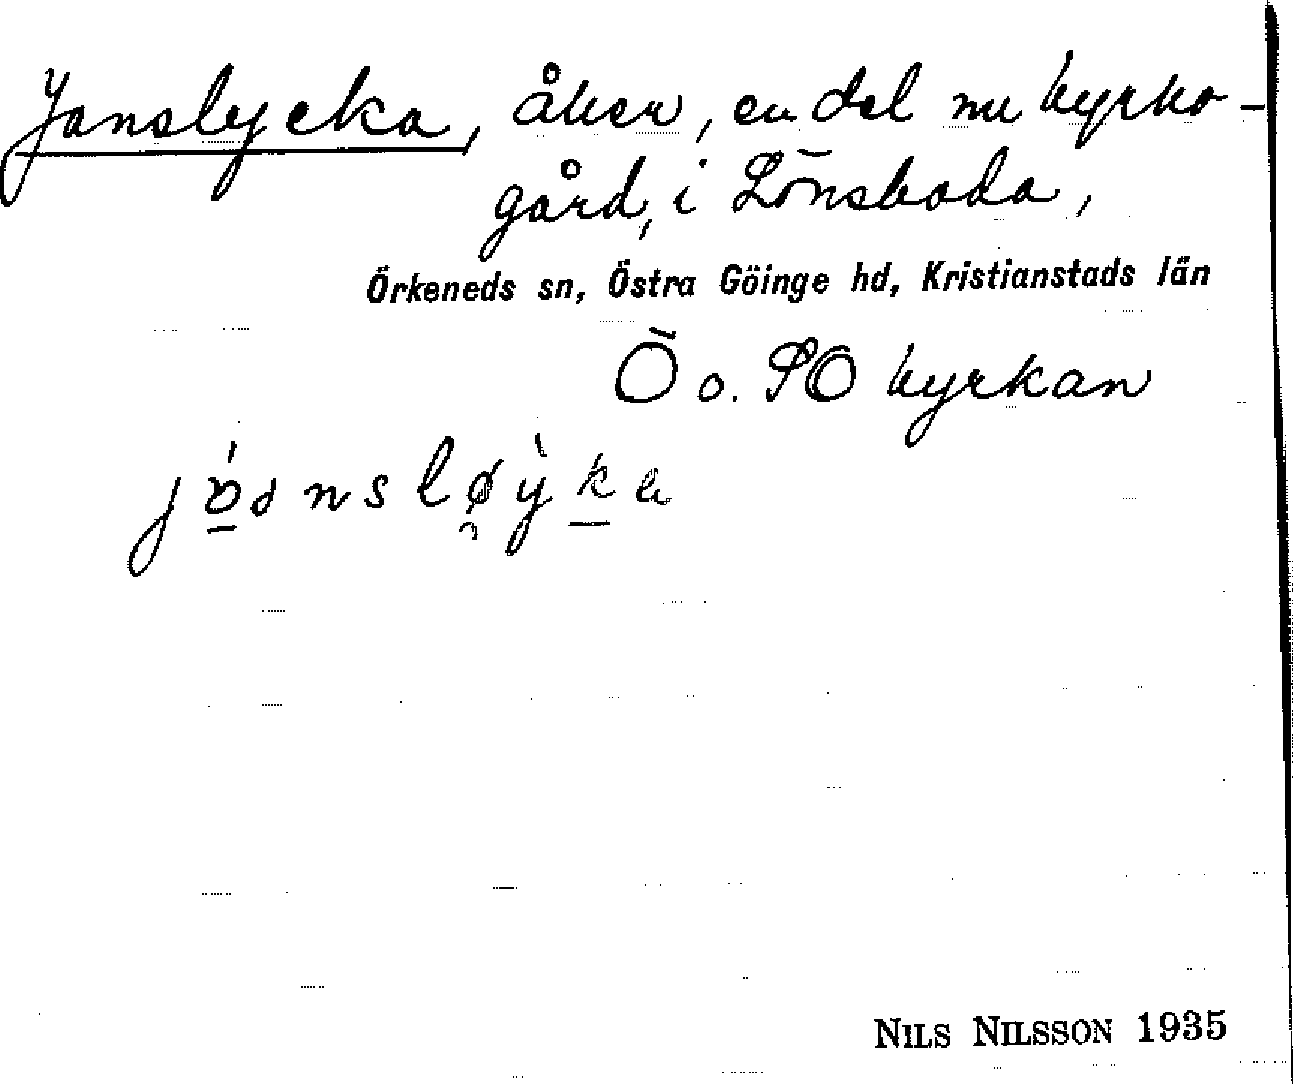 Janslycka, åker, en del nu kyrko-
gård, i Lönsboda,
Örkeneds sn, Östra Göinge hd, Kristianstads län
Ö o. SO kyrkan
NILS NILSSON 1935